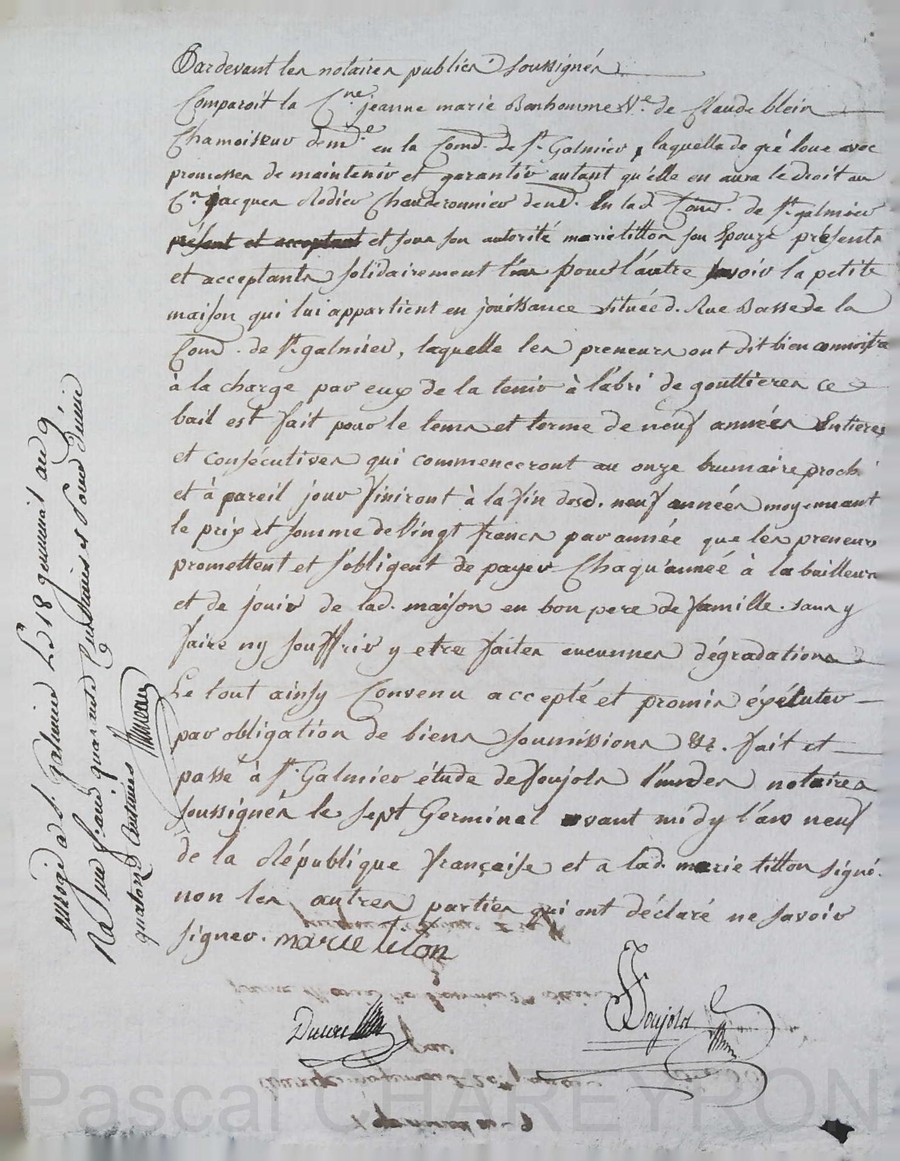 Pardevant les notaires publics soussignés
Comparoit la C.ne jeanne marie Bonhomme V.e de Claude blein
Chamoiseur dem.te en la Com.d de S.t Galmier, laquelle de gré loue avec
promesses de maintenir et garantir autant qu'elle en aura le droit au
C.n jacques Rodier Chauderonnier dem.d En lad. Com.d de S.t galmier
présent et acceptant et sous son autorité marie titton son Epouze présents
et acceptants solidairement l'un pour l'autre savoir la petite
maison qui lui appartient en jouissance située d. Rue Basse de la
Com.d de S.t galmier, laquelle les preneurs ont dit bien connoitre
à la charge par eux de la tenir à l'abri de gouttieres ce
bail est fait pour le tems et terme de neuf années Entieres
et consécutives qui commenceront au onze brumaire proch.
et à pareil jour finiront à la fin desd. neuf années moyennant
le prix et somme de Vingt francs par année que les preneurs
promettent et s'obligent de payer Chaqu'année à la bailleure
et de jouir de lad. maison en bon pere de famille. sans y
faire ny souffrir y etre faites aucunnes dégradations
Le tout ainsy Convenu accepté et promis éxécuter
par obligation de biens soumissions &c. fait et
passé à S.t Galmier étude de foujols l'un des notaires
soussignés le sept Germinal avant midy l'an neuf
de la République française et a lad. marie titton signé.
non les autres parties qui ont déclaré ne savoir
signer. marie titon
foujols
enregé à S.t Galmier Le 18 germinal an 9